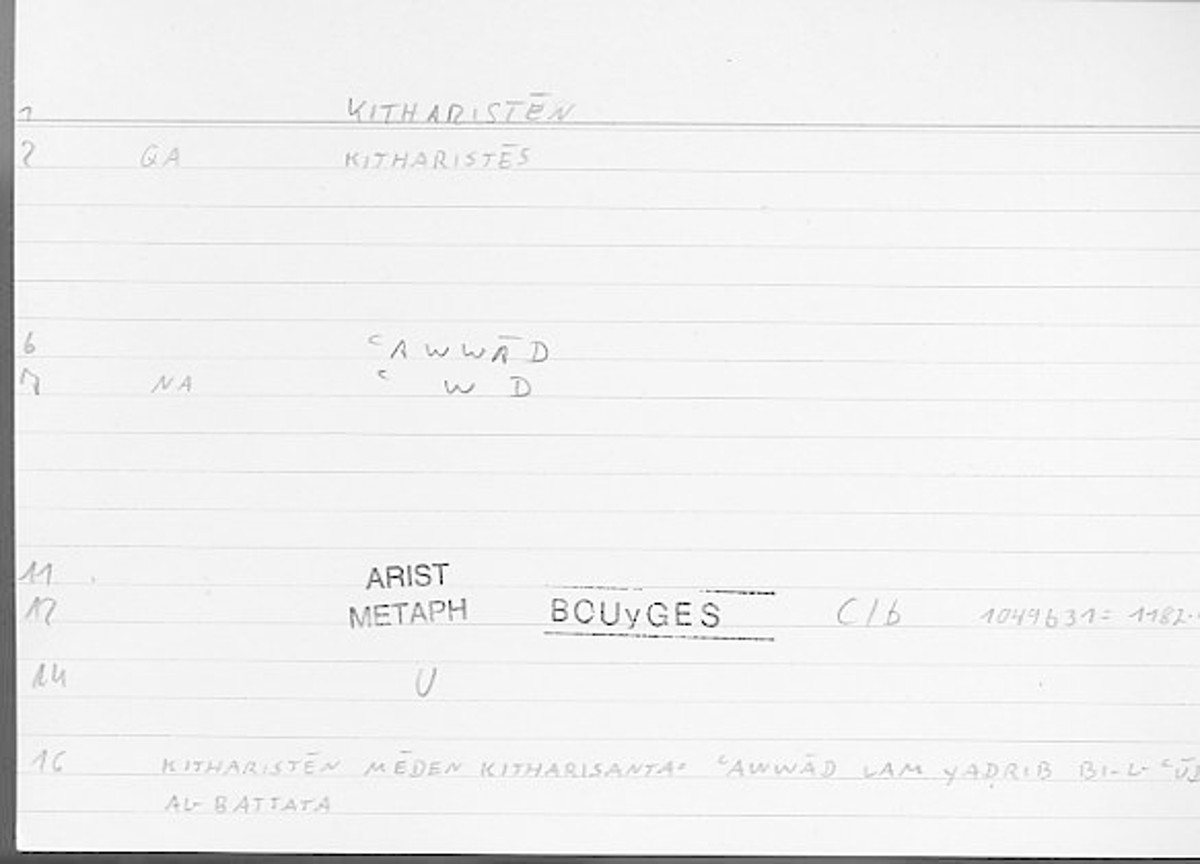 1 KITHARISTĒN
2 GA KITHARISTĒS
6 ʿAWWĀD
7 NA ʿ W D
11 ARIST
12 METAPH BOUyGES C/b 1049b31= 1182.
14 U
16 KITHARISTĒN MĒDEN KITHARISANTA= ʿAWWĀD LAM yAḌRIB BI-L-ʿŪD
AL-BATTATA